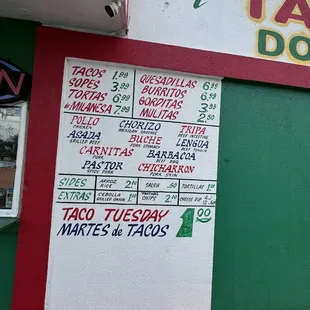 TA
DO
TACOS 1.99
SOPES 3.99
TORTAS 6.99
MILANESA 7.99
QUESADILLAS 6.99
BURRITOS 6.99
GORDITAS 3.99
MULITAS 2.50
POLLO
CHICKEN
ASADA
GRILLED BEEF
CHORIZO
MEXICAN SAUSAGE
BUCHE
PORK STOMACH
TRIPA
BEEF INTESTINE
LENGUA
BEEF TONGUE
CARNITAS
PORK
BARBACOA
BEEF BBQ
PASTOR
SPICY PORK
CHICHARRON
PORK SKIN
SIDES ARROZ RICE 2.00 SALSA .50 TORTILLAS 1.00
EXTRAS CEBOLLA GRILLED ONION CHIPS 2.00 CHEESE
TACO TUESDAY
MARTES de TACOS
1.00